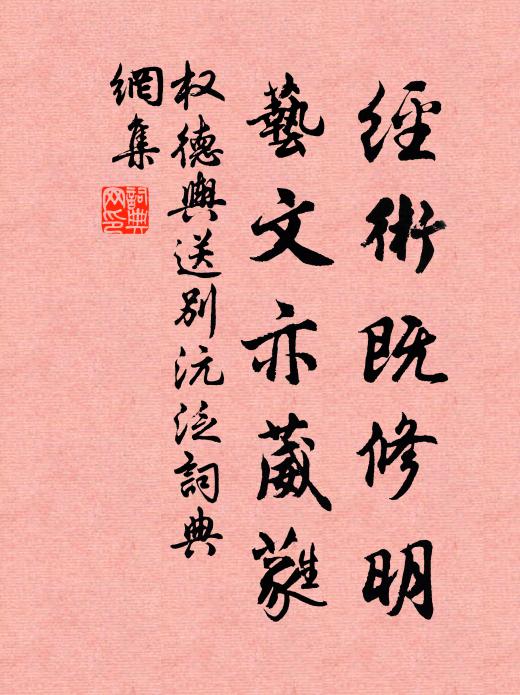 經術既修明
藝文亦葳蕤
权德輿送别沅泛詞典
網集
詞典網印